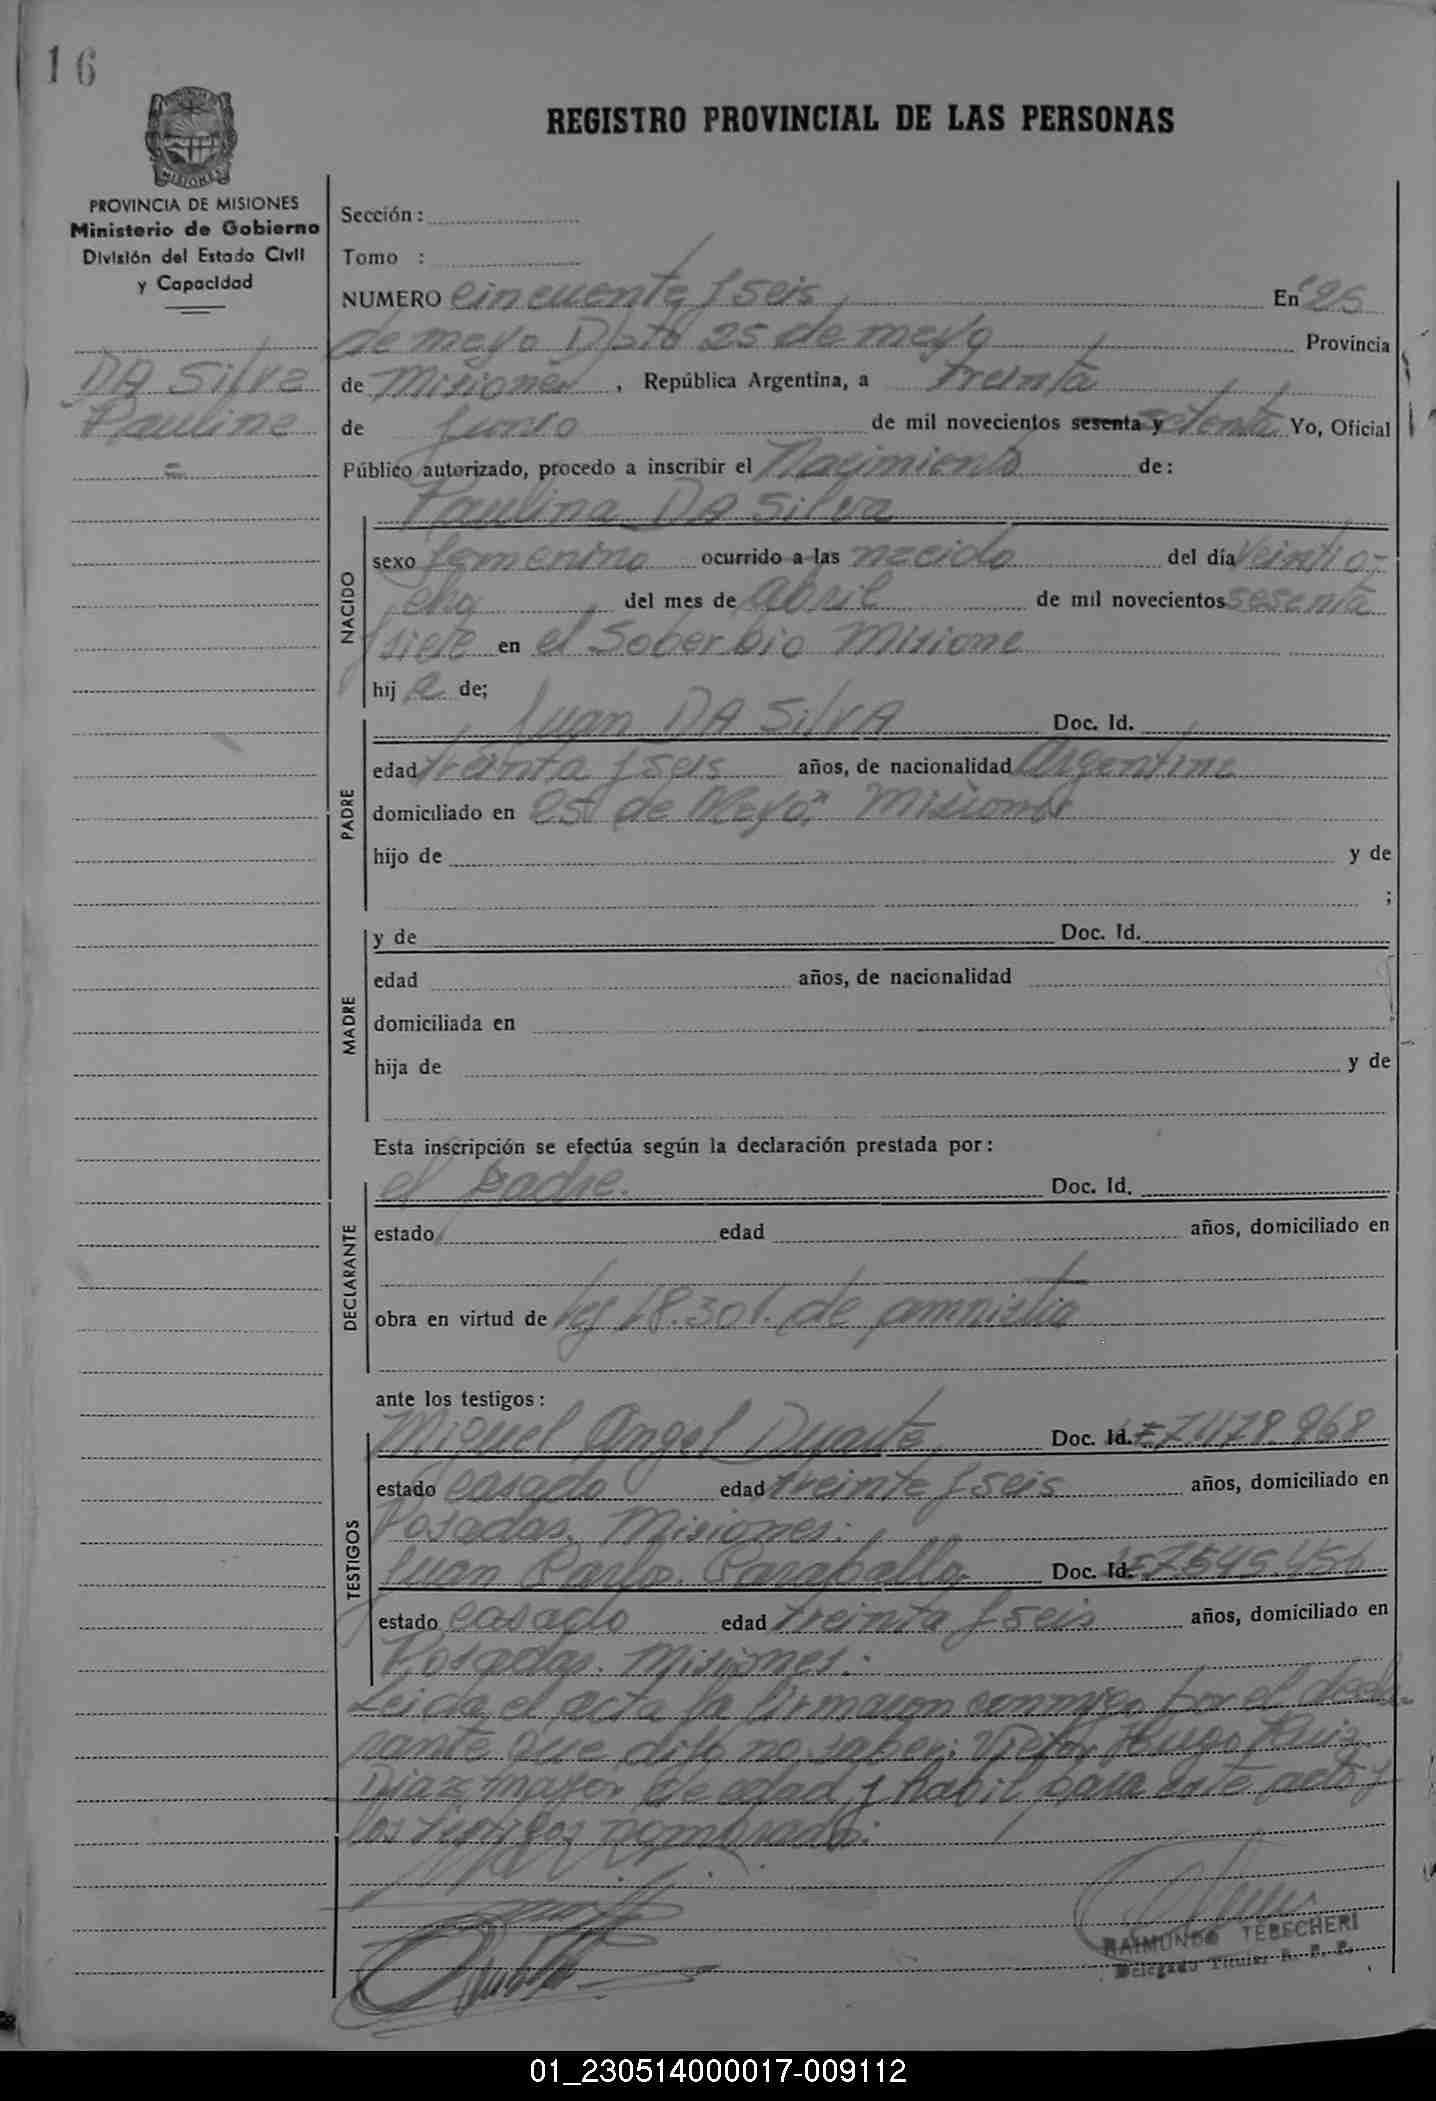 16
REGISTRO PROVINCIAL DE LAS PERSONAS
MISIONES
PROVINCIA DE MISIONES
Ministerio de Gobierno
División del Estado Civil
y Capacidad
DA Silva
Paulina
Sección:
Tomo :
NUMERO cincuenta y seis En "25
de mayo Dpto 25 de mayo Provincia
de Misiones, República Argentina, a treinta
de junio de mil novecientos sesenta y setenta Yo, Oficial
Público autorizado, procedo a inscribir el Nacimiento de:
Paulina DA Silva
NACIDO
sexo femenino ocurrido a las nacido del día veintio-
cho del mes de abril de mil novecientos sesenta
y siete en el Soberbio Misione
hij a de;
PADRE
Juan DA SilvA Doc. Id.
edad treinta y seis años, de nacionalidad Argentina
domiciliado en 25 de Mayo" Misiones
hijo de y de
;
MADRE
y de Doc. Id.
edad años, de nacionalidad
domiciliada en
hija de y de
Esta inscripción se efectúa según la declaración prestada por:
DECLARANTE
el padre. Doc. Id.
estado edad años, domiciliado en
obra en virtud de ley 18.301. de amnistia
ante los testigos:
TESTIGOS
Miguel Angel Duarte Doc. Id. LE 7.478.968
estado casado edad treinta y seis años, domiciliado en
Posadas. Misiones.
Juan Carlos Caraballo Doc. Id. LE 7.545.456
estado casado edad treinta y seis años, domiciliado en
Posadas. Misiones.
Leida el acta la firmaron conmigo por el decla-
rante que dijo no saber: Victor Hugo Ruiz
Diaz mayor de edad y habil para este acto y
los testigos nombrado.
RAIMUNDO TEBECHERI
Delegado Titular R. P. P.
01_230514000017-009112